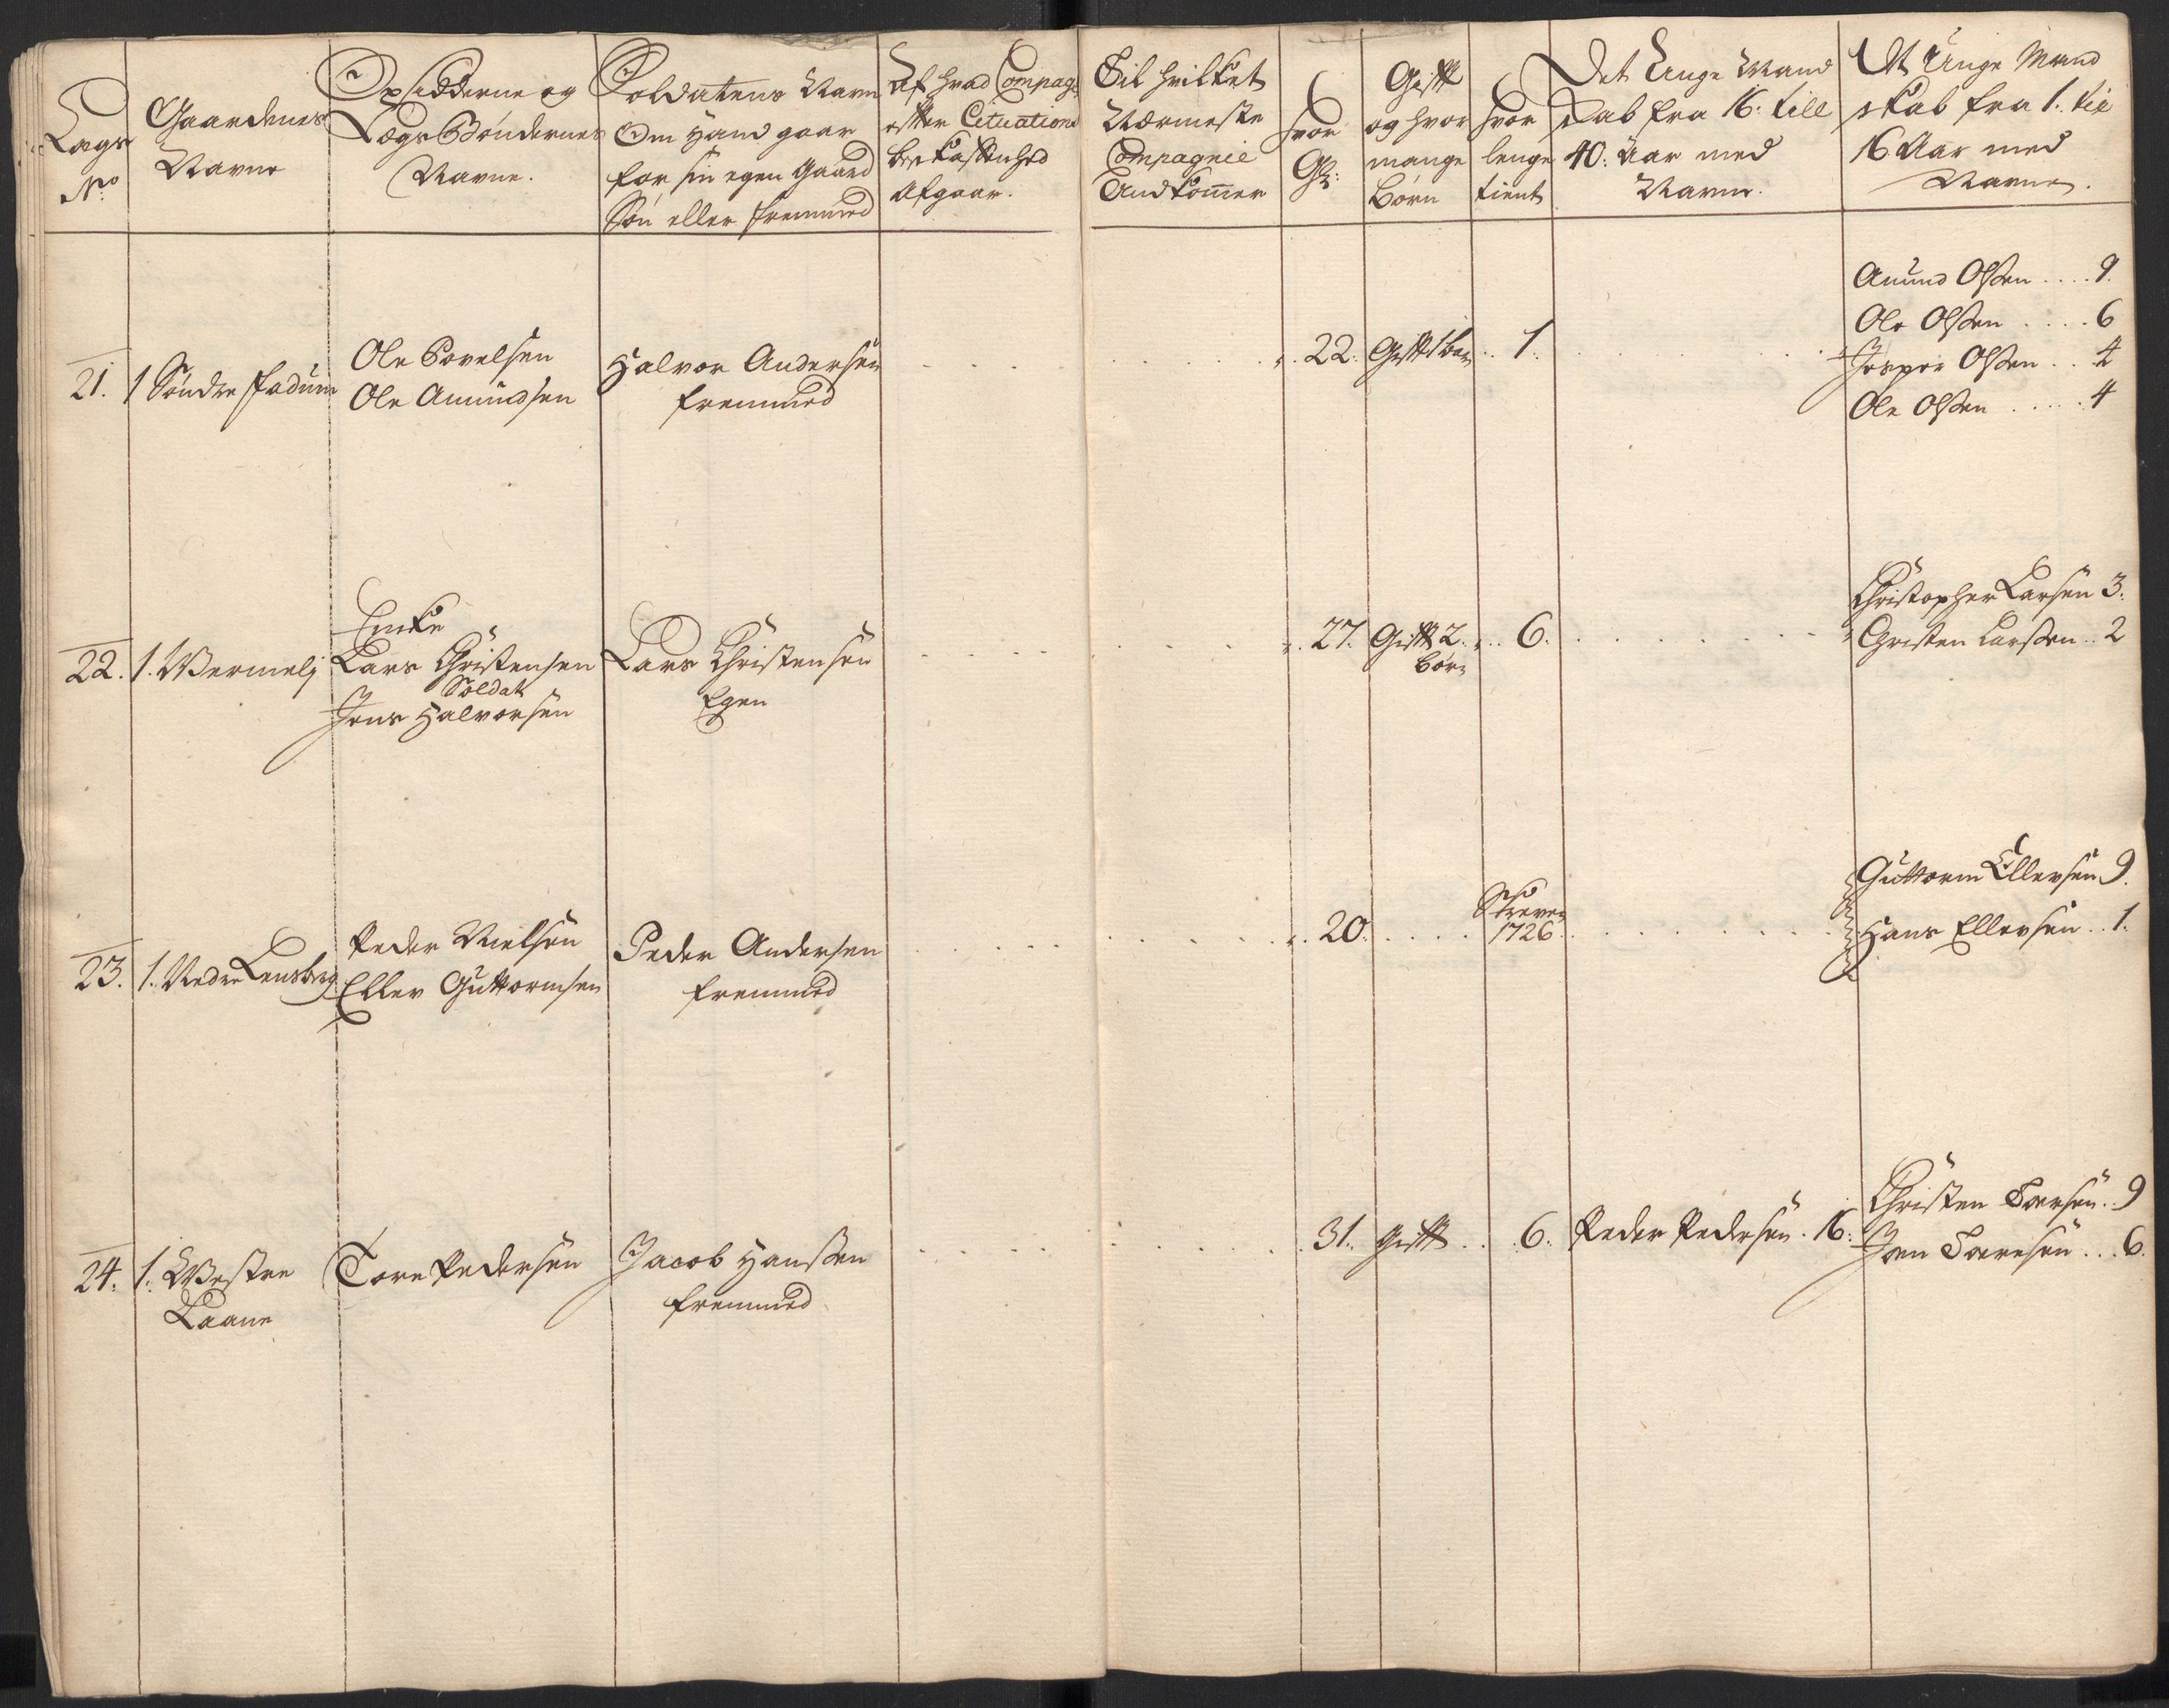 Lægs
No
Gaardenes
Navne
Opsidderne og
Lægs Bøndernes
Navne.
Soldatens Navn
Om Hand gaar
for sin egen Gaard
Søn eller fremmed
Af hvad Compag:
efter Cituations
beskaffenhed
Afgaar.
Til hvilket
Nærmeste
Compagnie
Andkom̄er
hvor
Gl:
Gift
og hvor
mange
børn
hvor
lenge
tient
Det Unge Mand
skab fra 16. till
40: Aar med
Navne.
Dt Unge Mand
skab fra 1. til
16 Aar med
Navne.
21. 1 Søndre fadum
Ole Povelsen
Ole Amundsen
Halvor Andersen
fremmed
22. Gift 1 ba 1.
Amund Olsen 9.
Ole Olsen 6
Jesper Olsen 4
Ole Olsen 4
22. 1. Wermelj
Enke
Lars Christensen
Soldat
Jens Halvorsen
Lars Christensen
Egen
27. Gift 2. 6.
børn
Christopher Larsen 3.
Christen Larsen 2
23. 1. Nedre Lensberg
Peder Nielsen
Ellev Guttormsen
Peder Andersen
fremmed
20.
Skreven
1726
Guttorm Ellevsen 9.
Hans Ellevsen 1.
24. 1. Westre
Laane
Tore Pedersen
Jacob Hansen
fremmed
31. Gift 6. Peder Pedersen 16.
Christen Toersen 9
Jven Toeresen 6.